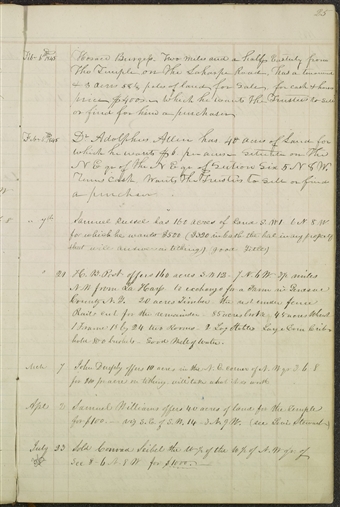 25
Feb 8th 1848 Howard Burgess Two miles and a half Easterly from
The Temple on The Laharpe Road, has a house
& 3 acres & 52 poles of land for Sale, for cash & his
price $400.— which he wants The Trustees to Sell
or find for him a purchaser
Feb 1848 Dr Adolphus Allen has 40 acres of Land for
which he wants $6 per acre situate on The
N E qr of The N E qr of Section Six 5 N 8 W.
Terms Cash. Wants The Trustees to Sell or find
a purchaser
" 7th Samuel has 160 acres of Land S.W. 1 6 N 8 W
for which he wants $520 ($320 in Cash the bal. in any property
that will answer in tithing) good Title
" 21 H. B. Post offers 160 acres S. W 12. 7 N 6 W 3½ miles
N. W from La Harp to exchange for a Farm in
County N. Y. 20 acres Timber the rest under fence
Rails cut for the remainder. 85 acres broke 45 acres Wheat
1 Frame 18 by 24 two Rooms 2 Log Large Corn Cribs
hold 800 bushels. Good Well of water.
March 7 John offers 10 acres in the N. E. corner of N. W qr 3 6 8
for $10 pr acre on tithing
Apl 2 Samuel Williams offers 40 acres of land for the Temple
for $100 — viz S. E of S. W. 14 - 5 N 9 W. (see Levi Stewart)
July 23 Sold Conrad the W ½ of the W ½ of N. W qr of
Sec 8 6 N 8 W for $100.—